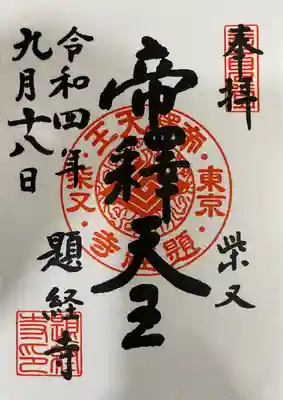 奉拝
柴又
帝釋天王
帝釋天王
東京
柴又
題経寺
令和四年
九月十八日
題経寺